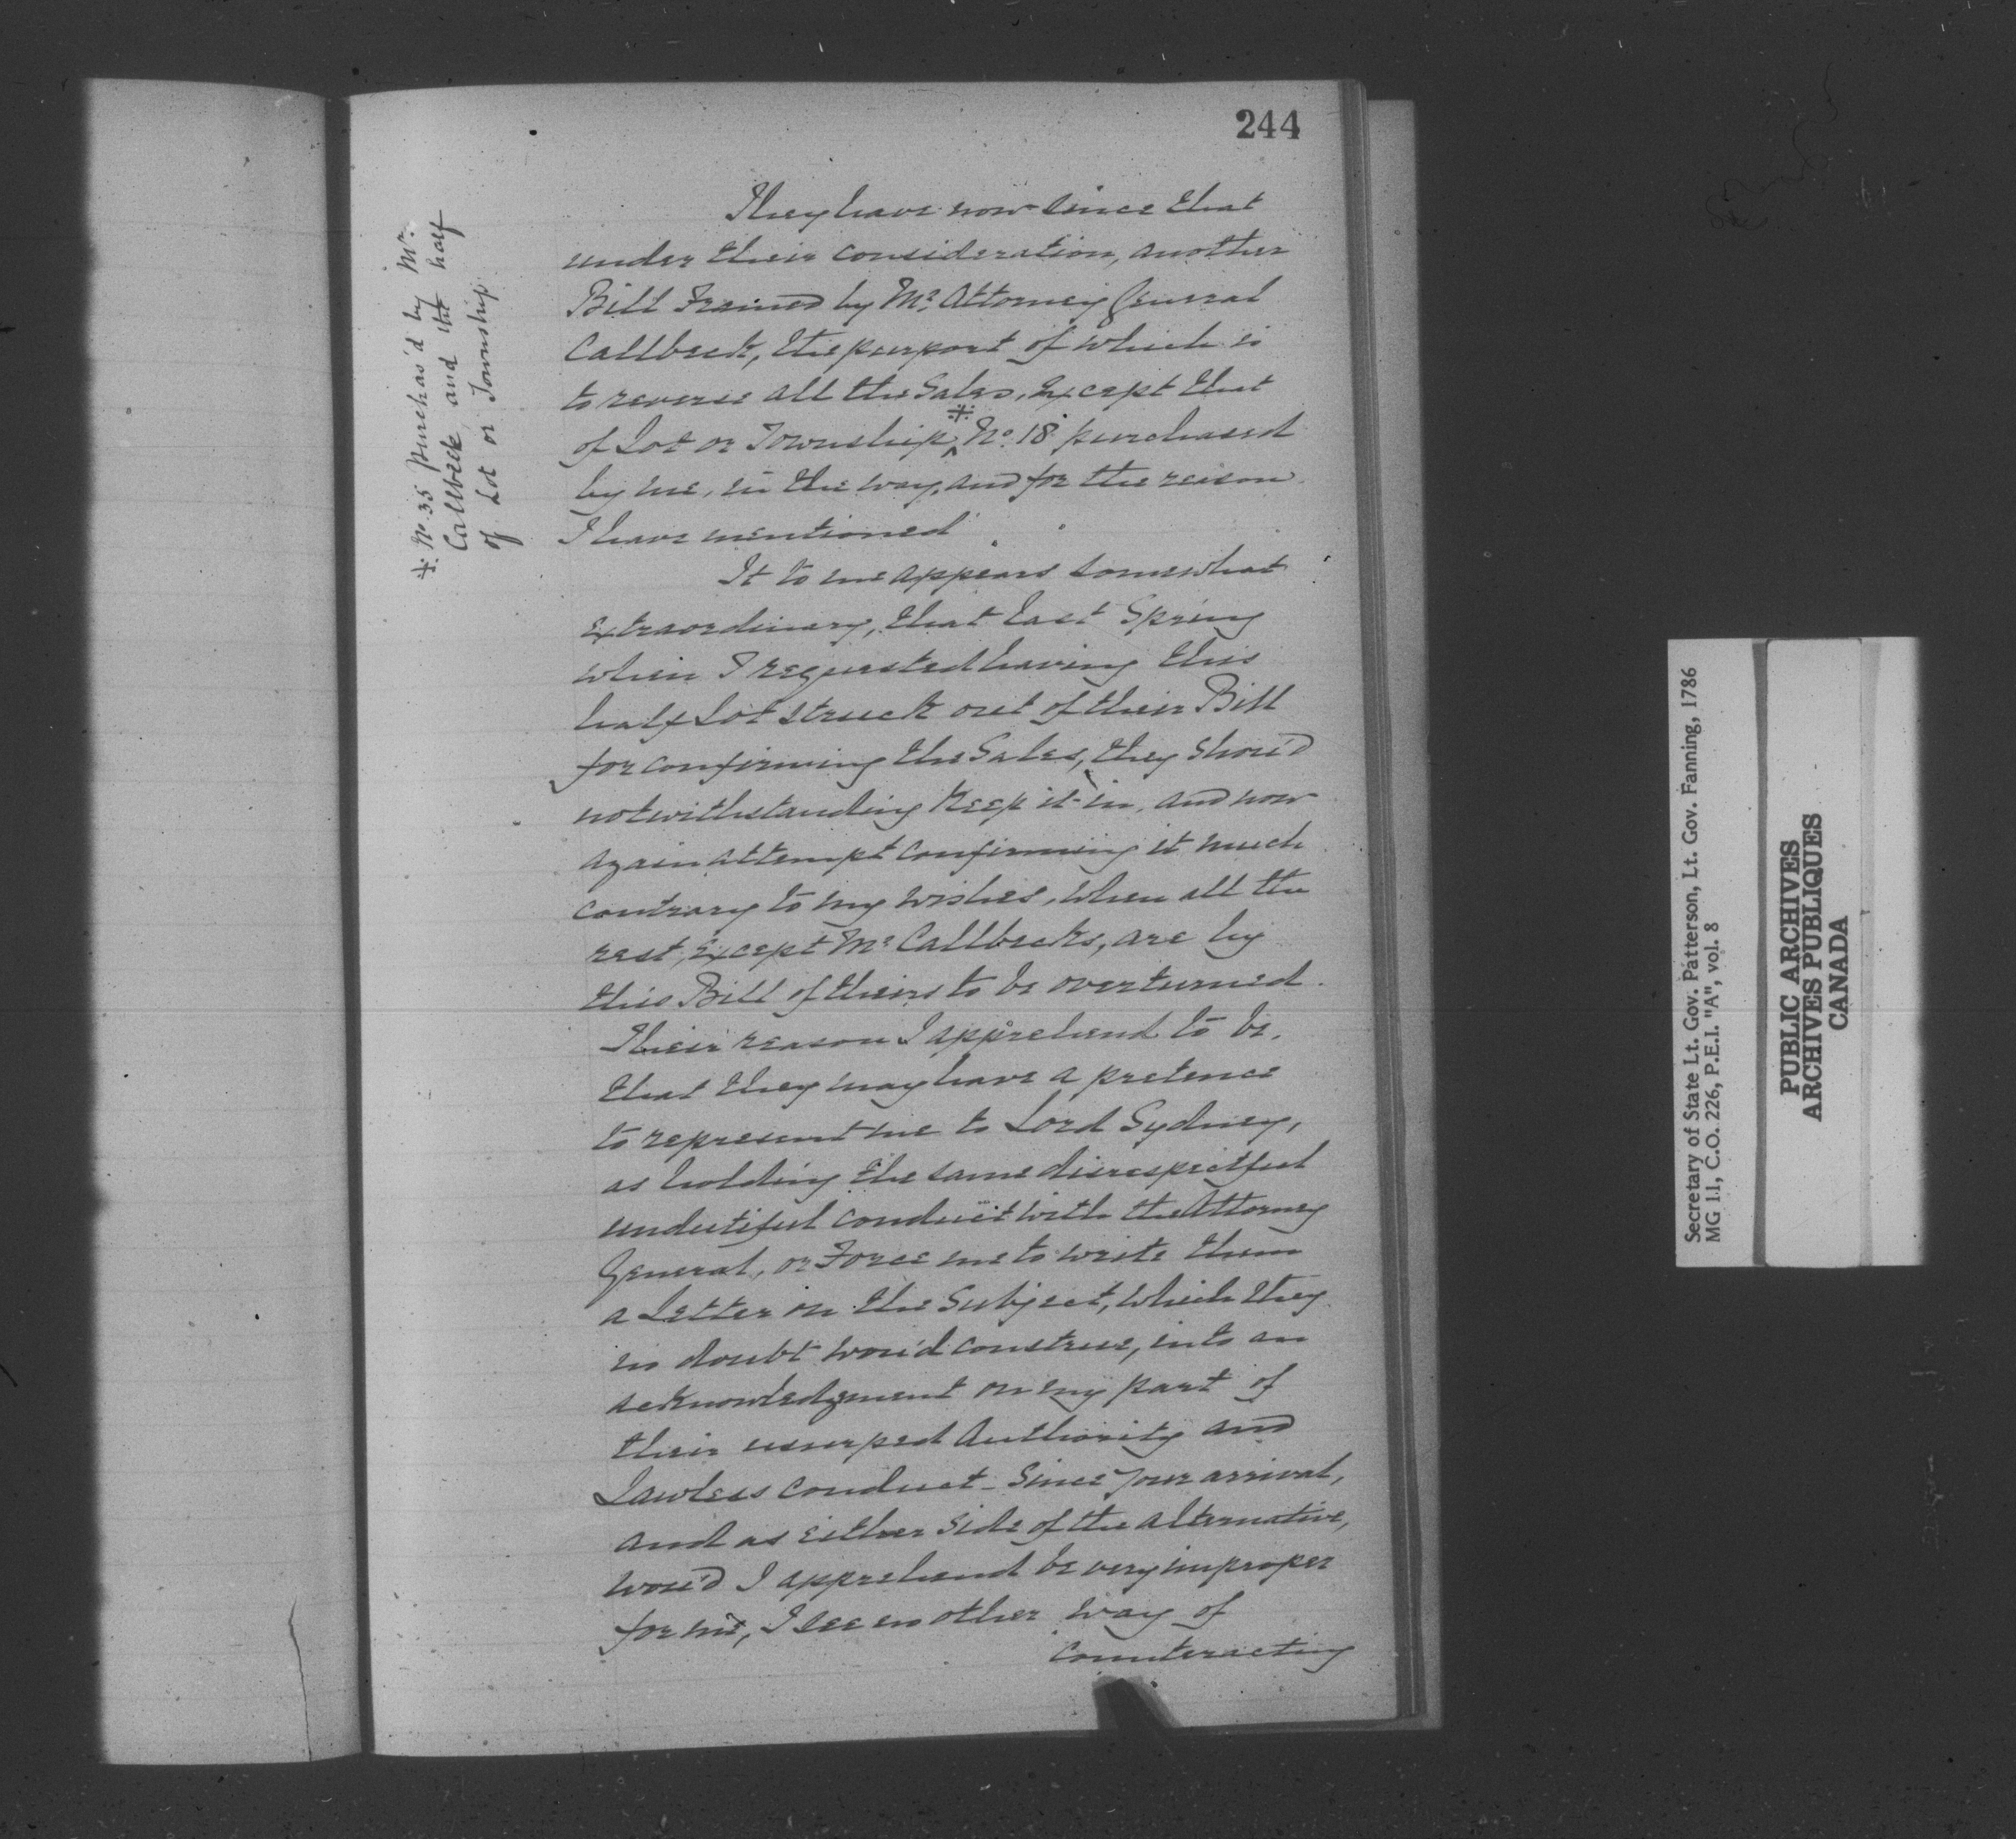 244
They have now since that
under their consideration, another
Bill Framed by Mr. Attorney General
Callbeck, the purport of which is
to reverse all the Sales, Except that
of Lot or Township ※ No. 18 purchased
by me, in the way, and for the reason
I have mentioned
※ No. 35 purchas'd by Mr.
Callbeck and the half
of Lot or Township
It to me appears somewhat
Extraordinary, that last Spring
when I requested having this
half Lot struck out of their Bill
for confirming the Sales, they Shou'd
notwithstanding Keep it in, and now
again attempt confirming it much
contrary to my wishes, when all the
rest, Except Mr Callbecks, are by
this Bill of theirs to be overturned.
Their reason I apprehend to be,
that they may have a pretence
to represent me to Lord Sydney,
as holding the same disrespectful
undutiful conduct with the Attorney
General, or Force me to write them
a Letter on the Subject, which they
no doubt wou'd construe, into an
acknowledgment on my part of
their usurped Authority and
Lawless conduct - Since your arrival,
and as Either Side of the alternative,
wou'd I apprehend be very improper
for me, I see no other way of
counteracting
Secretary of State Lt. Gov. Patterson, Lt. Gov. Fanning, 1786
MG 11, C.O. 226, P.E.I. "A", vol. 8
PUBLIC ARCHIVES
ARCHIVES PUBLIQUES
CANADA